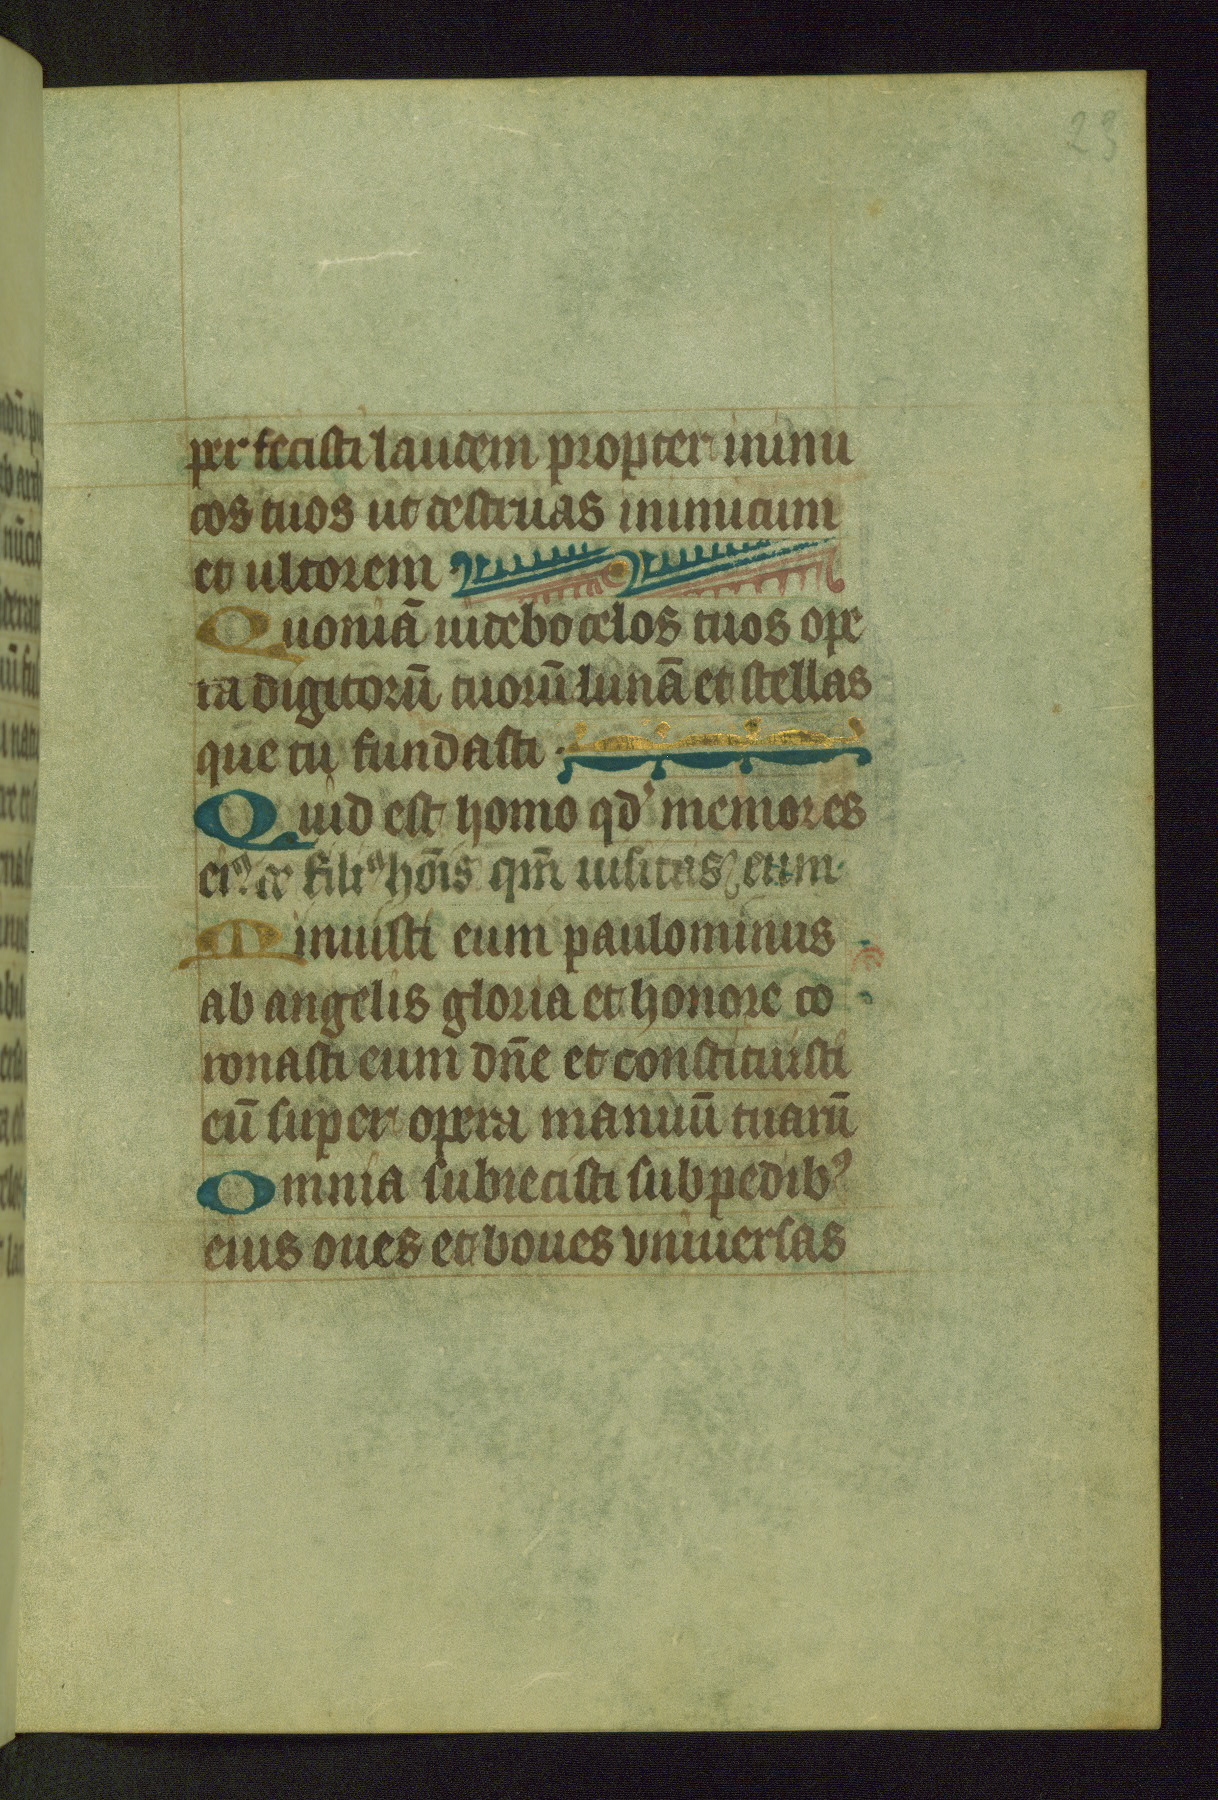 23
per fecisti laudem propter inimi
cos tuos ut destruas inimicum
et ultorem
Quoniā uidebo celos tuos ope
ra digitorū tuorū lunā et stellas
que tu fundasti
Quid est homo qd' memor es
eiꝰ? & filiꝰ hōis qm̄ uisitas eum·
Minuisti eum paulominus
ab angelis gloria et honore co
ronasti eum dn̄e et constituisti
eū super opera manuū tuarū
Omnia subiecisti sub pedibꝰ
eius oues et boues vniuersas